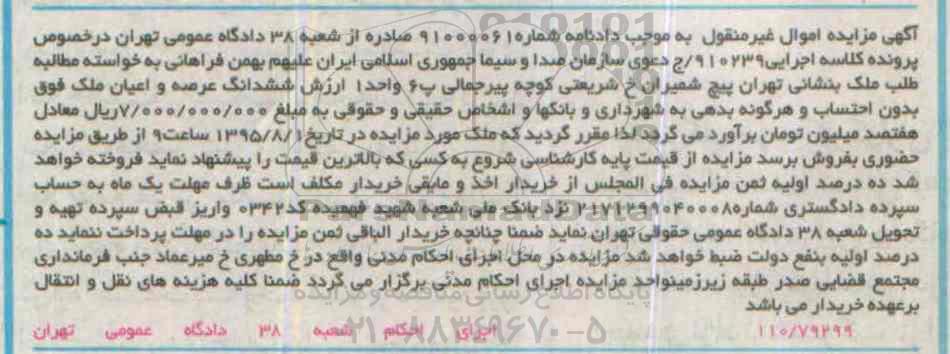 آگهی مزایده اموال غیرمنقول به موجب دادنامه شماره۹۱۰۰۰۰۶۱ صادره از شعبه ۳۸ دادگاه عمومی تهران درخصوص
پرونده کلاسه اجرایی۹۱۰۲۳۹/ج دعوی سازمان صدا و سیما جمهوری اسلامی ایران علیهم بهمن فراهانی به خواسته مطالبه
طلب ملک بنشانی تهران پیچ شمیران خ شریعتی کوچه پیرجمالی پ۶ واحد۱ ارزش ششدانگ عرصه و اعیان ملک فوق
بدون احتساب و هرگونه بدهی به شهرداری و بانکها و اشخاص حقیقی و حقوقی به مبلغ ۷/۰۰۰/۰۰۰/۰۰۰ریال معادل
هفتصد میلیون تومان برآورد می گردد لذا مقرر گردید که ملک مورد مزایده در تاریخ۱۳۹۵/۸/۱ ساعت۹ از طریق مزایده
حضوری بفروش برسد مزایده از قیمت پایه کارشناسی شروع به کسی که بالاترین قیمت را پیشنهاد نماید فروخته خواهد
شد ده درصد اولیه ثمن مزایده فی المجلس از خریدار اخذ و مابقی خریدار مکلف است ظرف مهلت یک ماه به حساب
سپرده دادگستری شماره۲۱۷۱۲۹۹۰۴۰۰۰۸ نزد بانک ملی شعبه شهید فهمیده کد۰۳۴۲ واریز قبض سپرده تهیه و
تحویل شعبه ۳۸ دادگاه عمومی حقوقی تهران نماید ضمنا چنانچه خریدار الباقی ثمن مزایده را در مهلت پرداخت ننماید ده
درصد اولیه بنفع دولت ضبط خواهد شد مزایده در محل اجرای احکام مدنی واقع در خ مطهری خ میرعماد جنب فرمانداری
مجتمع قضایی صدر طبقه زیرزمینواحد مزایده اجرای احکام مدنی برگزار می گردد ضمنا کلیه هزینه های نقل و انتقال
برعهده خریدار می باشد
۱۱۰/۷۹۲۹۹ اجرای احکام شعبه ۳۸ دادگاه عمومی تهران
پایگاه اطلاع رسانی مناقصه و مزایده
۰۲۱-۸۸۳۴۹۶۷۰-۵